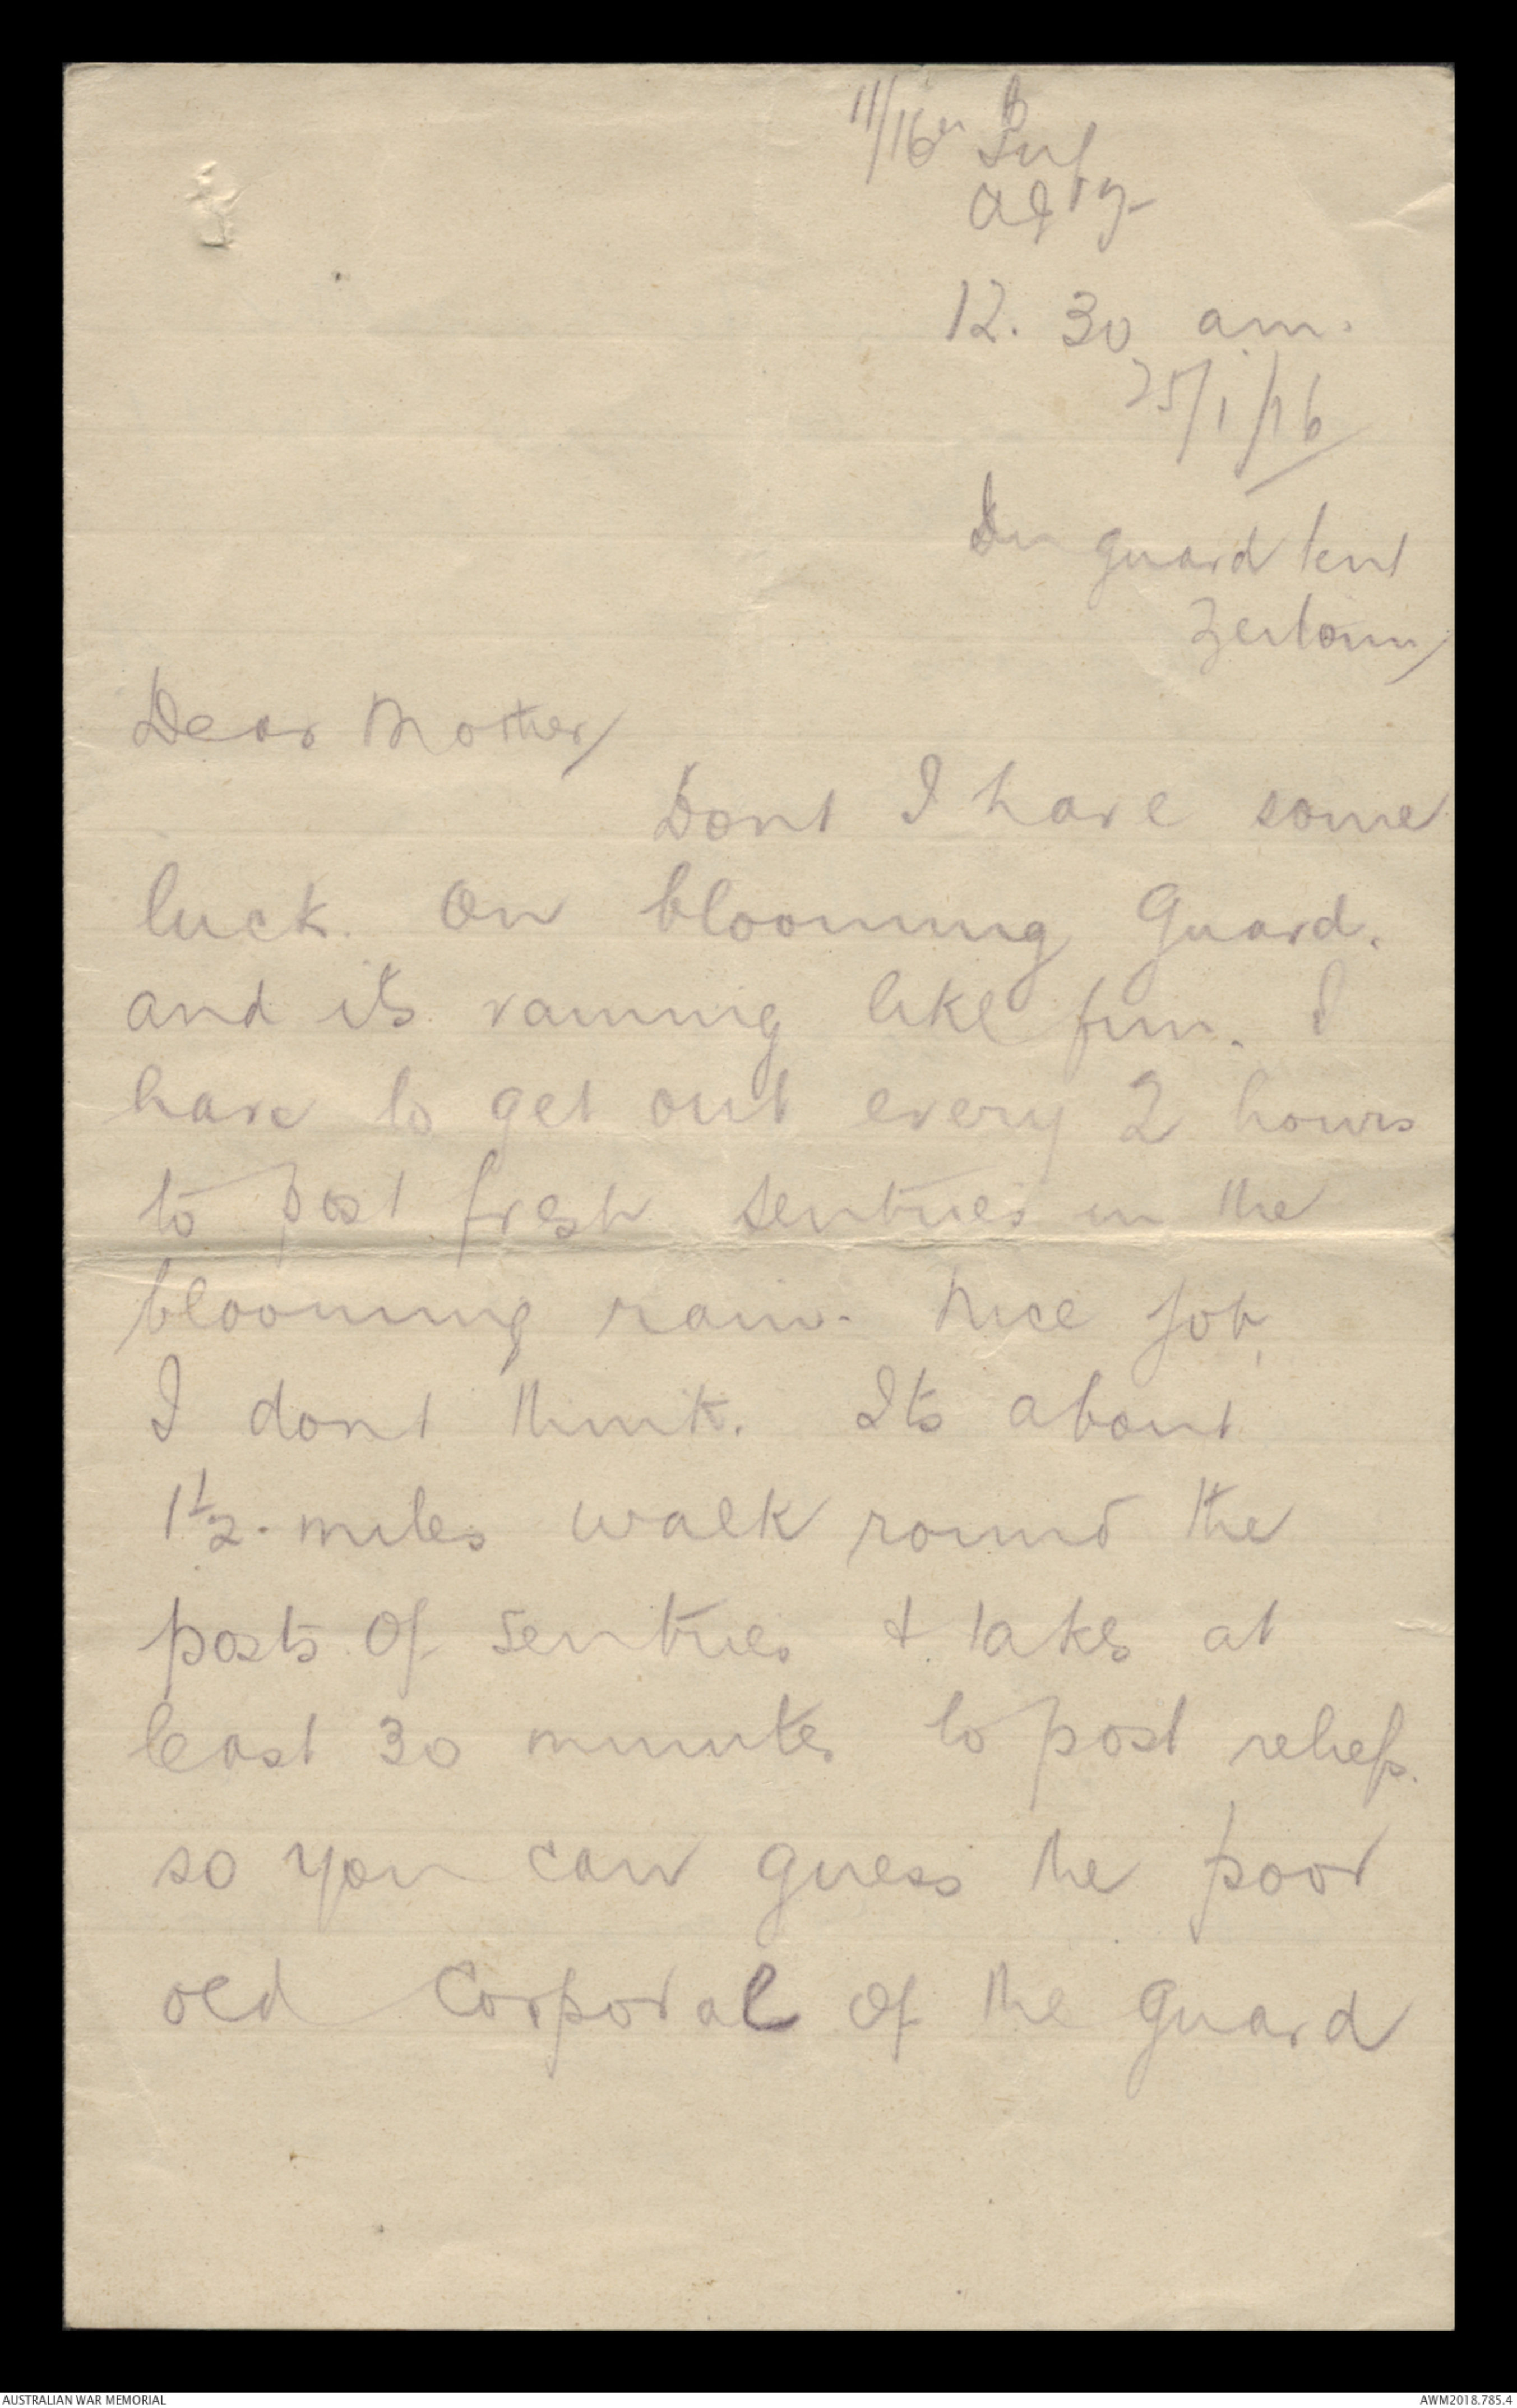 11/16th Inf
12. 30 am.
25/1/16
In guard tent
Zeitoun
Dear Mother
Dont I have some
luck. On blooming Guard.
and its raining like fun. I
have to get out every 2 hours
to post fresh sentries in the
blooming rain. Nice job
I dont think. Its about
1½ miles walk round the
posts of sentries & takes at
least 30 minutes to post reliefs.
so you can guess the poor
old Corporal of the Guard
AUSTRALIAN WAR MEMORIAL
AWM2018.785.4